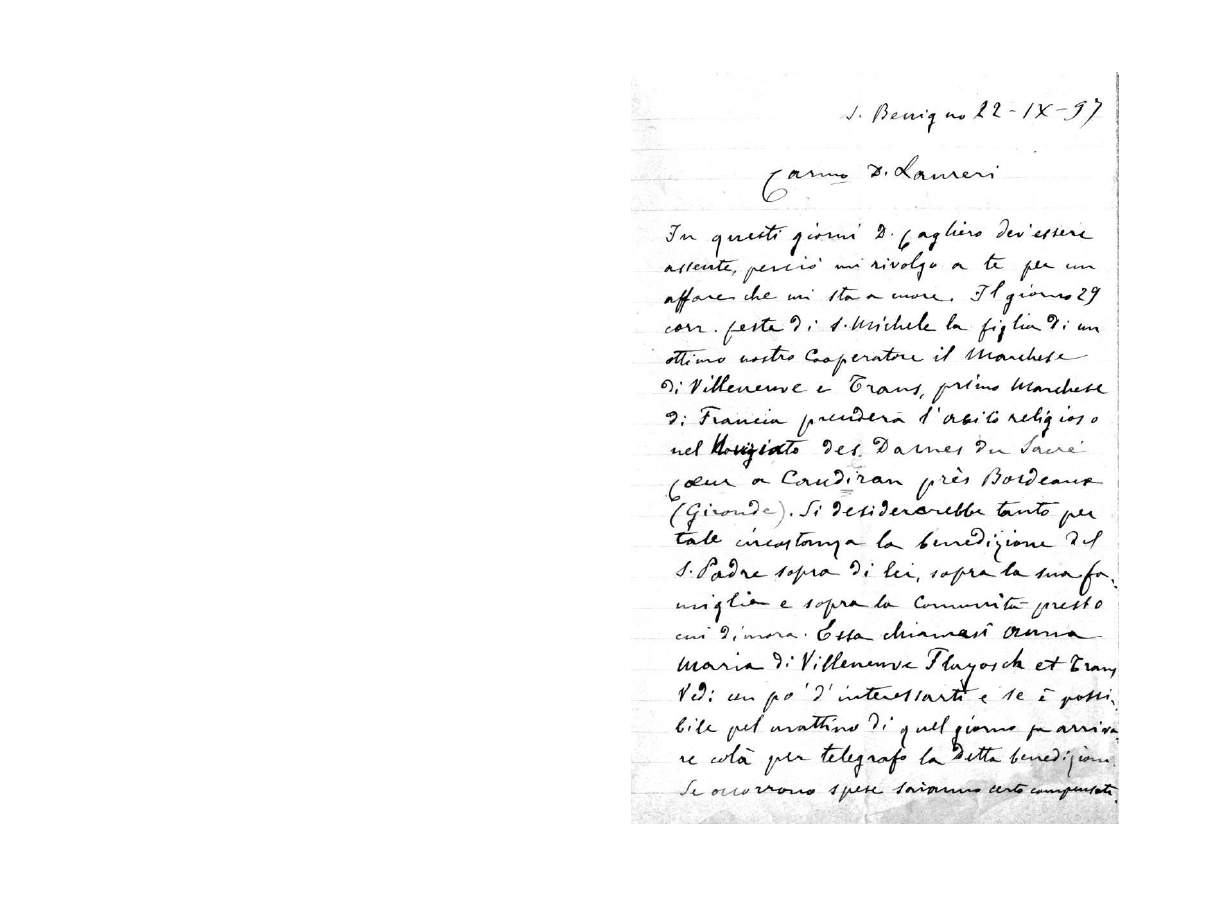 S. Benigno 22-IX-97
Carmo D. Laureri
In questi giorni D. Cagliero dev'essere
assente, perciò mi rivolgo a te per un
affare che mi sta a cuore. Il giorno 29
corr. festa di S. Michele la figlia di un
ottimo nostro Cooperatore il Marchese
di Villeneuve e Trans, primo Marchese
di Francia prenderà l'abito religioso
nel Noviziato des Dames du Sacré
Coeur a Caudiran près Bordeaux
(Gironde). Si desidererebbe tanto per
tale circostanza la benedizione del
S. Padre sopra di lei, sopra la sua fa-
miglia e sopra la Comunità presso
cui dimora. Essa chiamasi Anna
Maria di Villeneuve Flayosck et Trans
Vedi un po' d'interessarti e se è possi-
bile pel mattino di quel giorno fa arriva-
re colà per telegrafo la detta benedizione.
Se occorrono spese saranno certo compensate.